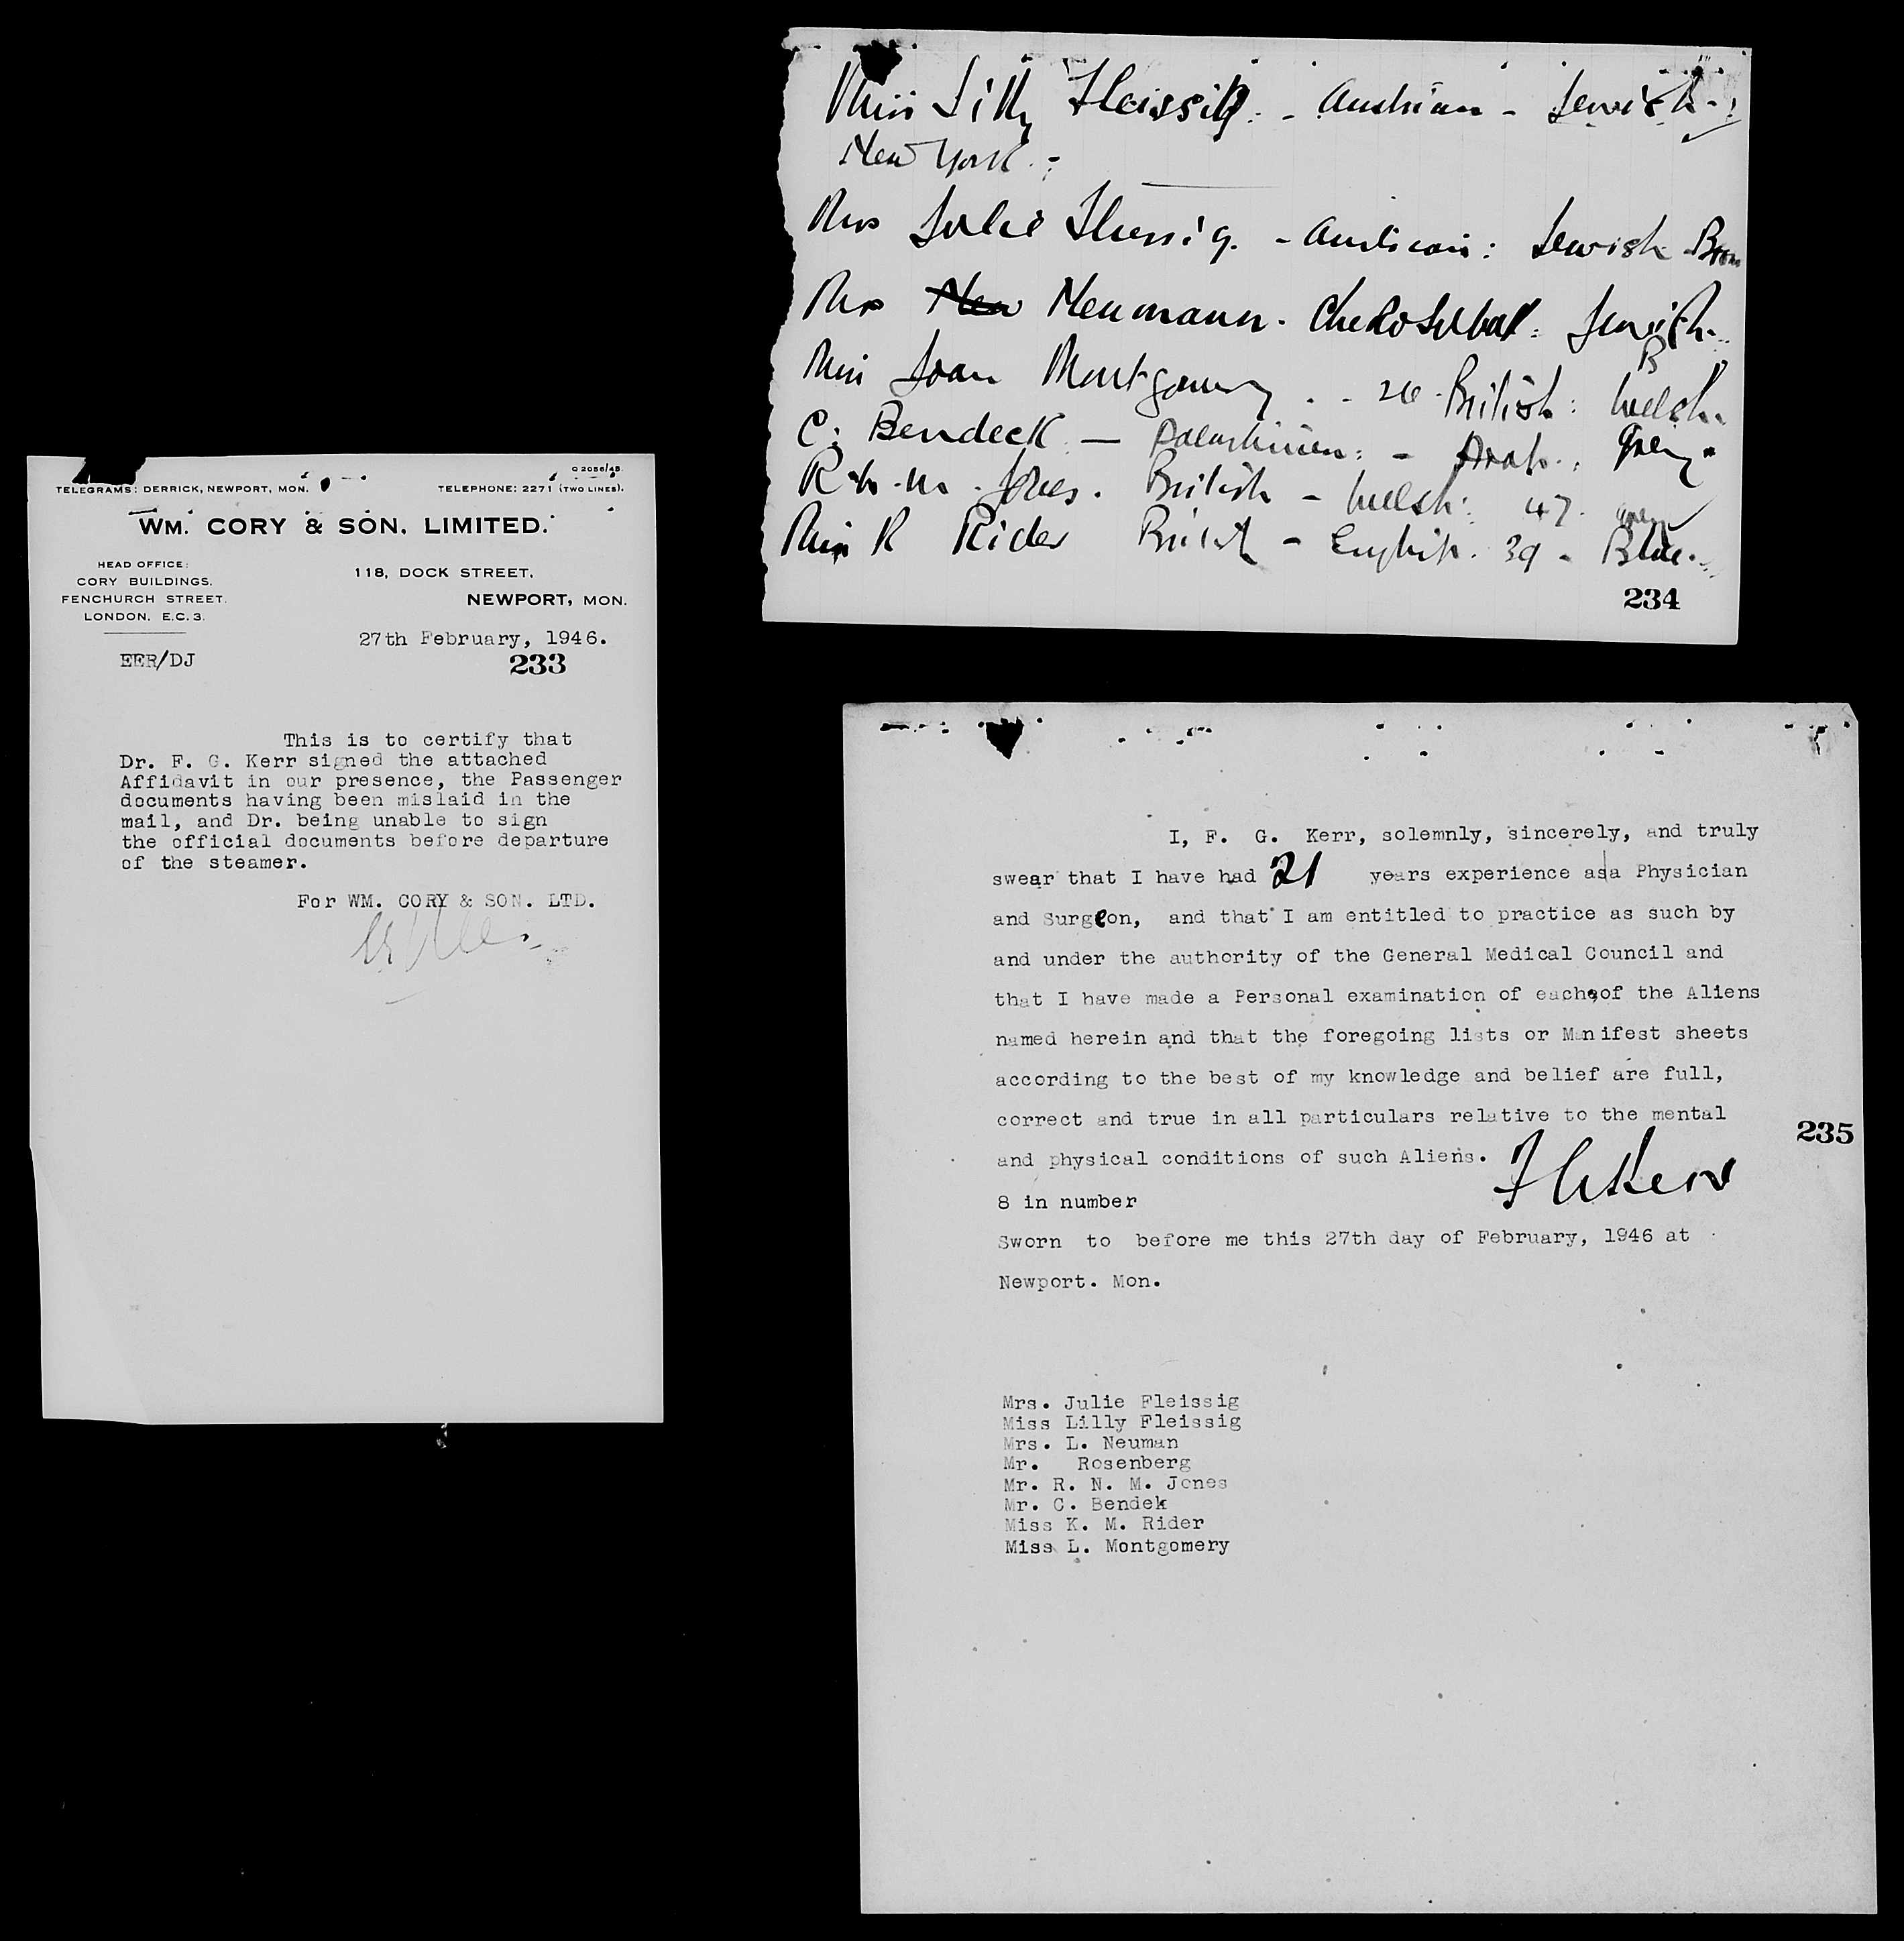 C 2056/45.
TELEGRAMS: DERRICK, NEWPORT, MON. TELEPHONE: 2271 (TWO LINES).
WM. CORY & SON. LIMITED.
HEAD OFFICE:
CORY BUILDINGS.
FENCHURCH STREET.
LONDON. E.C.3.
118, DOCK STREET,
NEWPORT, MON.
27th February, 1946.
EER/DJ
233
This is to certify that
Dr. F. G. Kerr signed the attached
Affidavit in our presence, the Passenger
documents having been mislaid in the
mail, and Dr. being unable to sign
the official documents before departure
of the steamer.
For WM. CORY & SON. LTD.
Miss Lilly Fleissig. - Austrian - Jewish -
New York. -
Mrs Julie Fleissig. - Austrian: Jewish Brown
Mrs New Neumann. Jewish
Miss Joan Montgomery - 26. British: Welsh. B
C. Bendeck — Palestinian: - Arab. Grey
R. N. M. Jones. British - Welsh: 47. Grey
Miss K Rider British - English. 39 - Blue.
234
I, F. G. Kerr, solemnly, sincerely, and truly
swear that I have had 21 years experience asa Physician
and Surgeon, and that I am entitled to practice as such by
and under the authority of the General Medical Council and
that I have made a Personal examination of each of the Aliens
named herein and that the foregoing lists or Manifest sheets
according to the best of my knowledge and belief are full,
correct and true in all particulars relative to the mental
and physical conditions of such Aliens.
F G Kerr
235
8 in number
Sworn to before me this 27th day of February, 1946 at
Newport. Mon.
Mrs. Julie Fleissig
Miss Lilly Fleissig
Mrs. L. Neuman
Mr. Rosenberg
Mr. R. N. M. Jones
Mr. C. Bendek
Miss K. M. Rider
Miss L. Montgomery